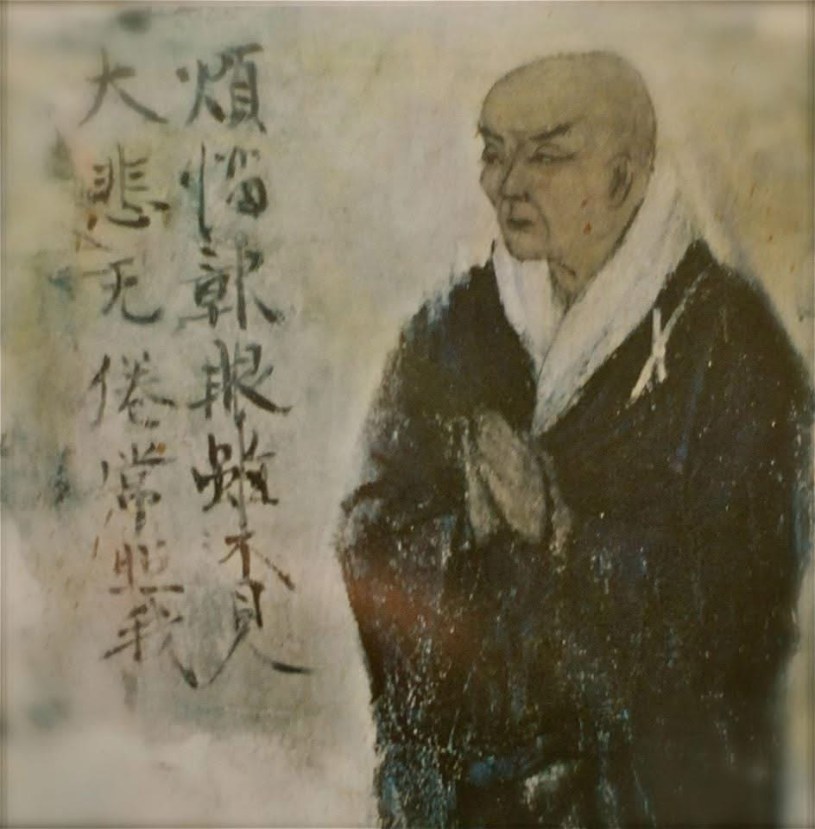 煩悩鄣眼雖不見
大悲无倦常照我